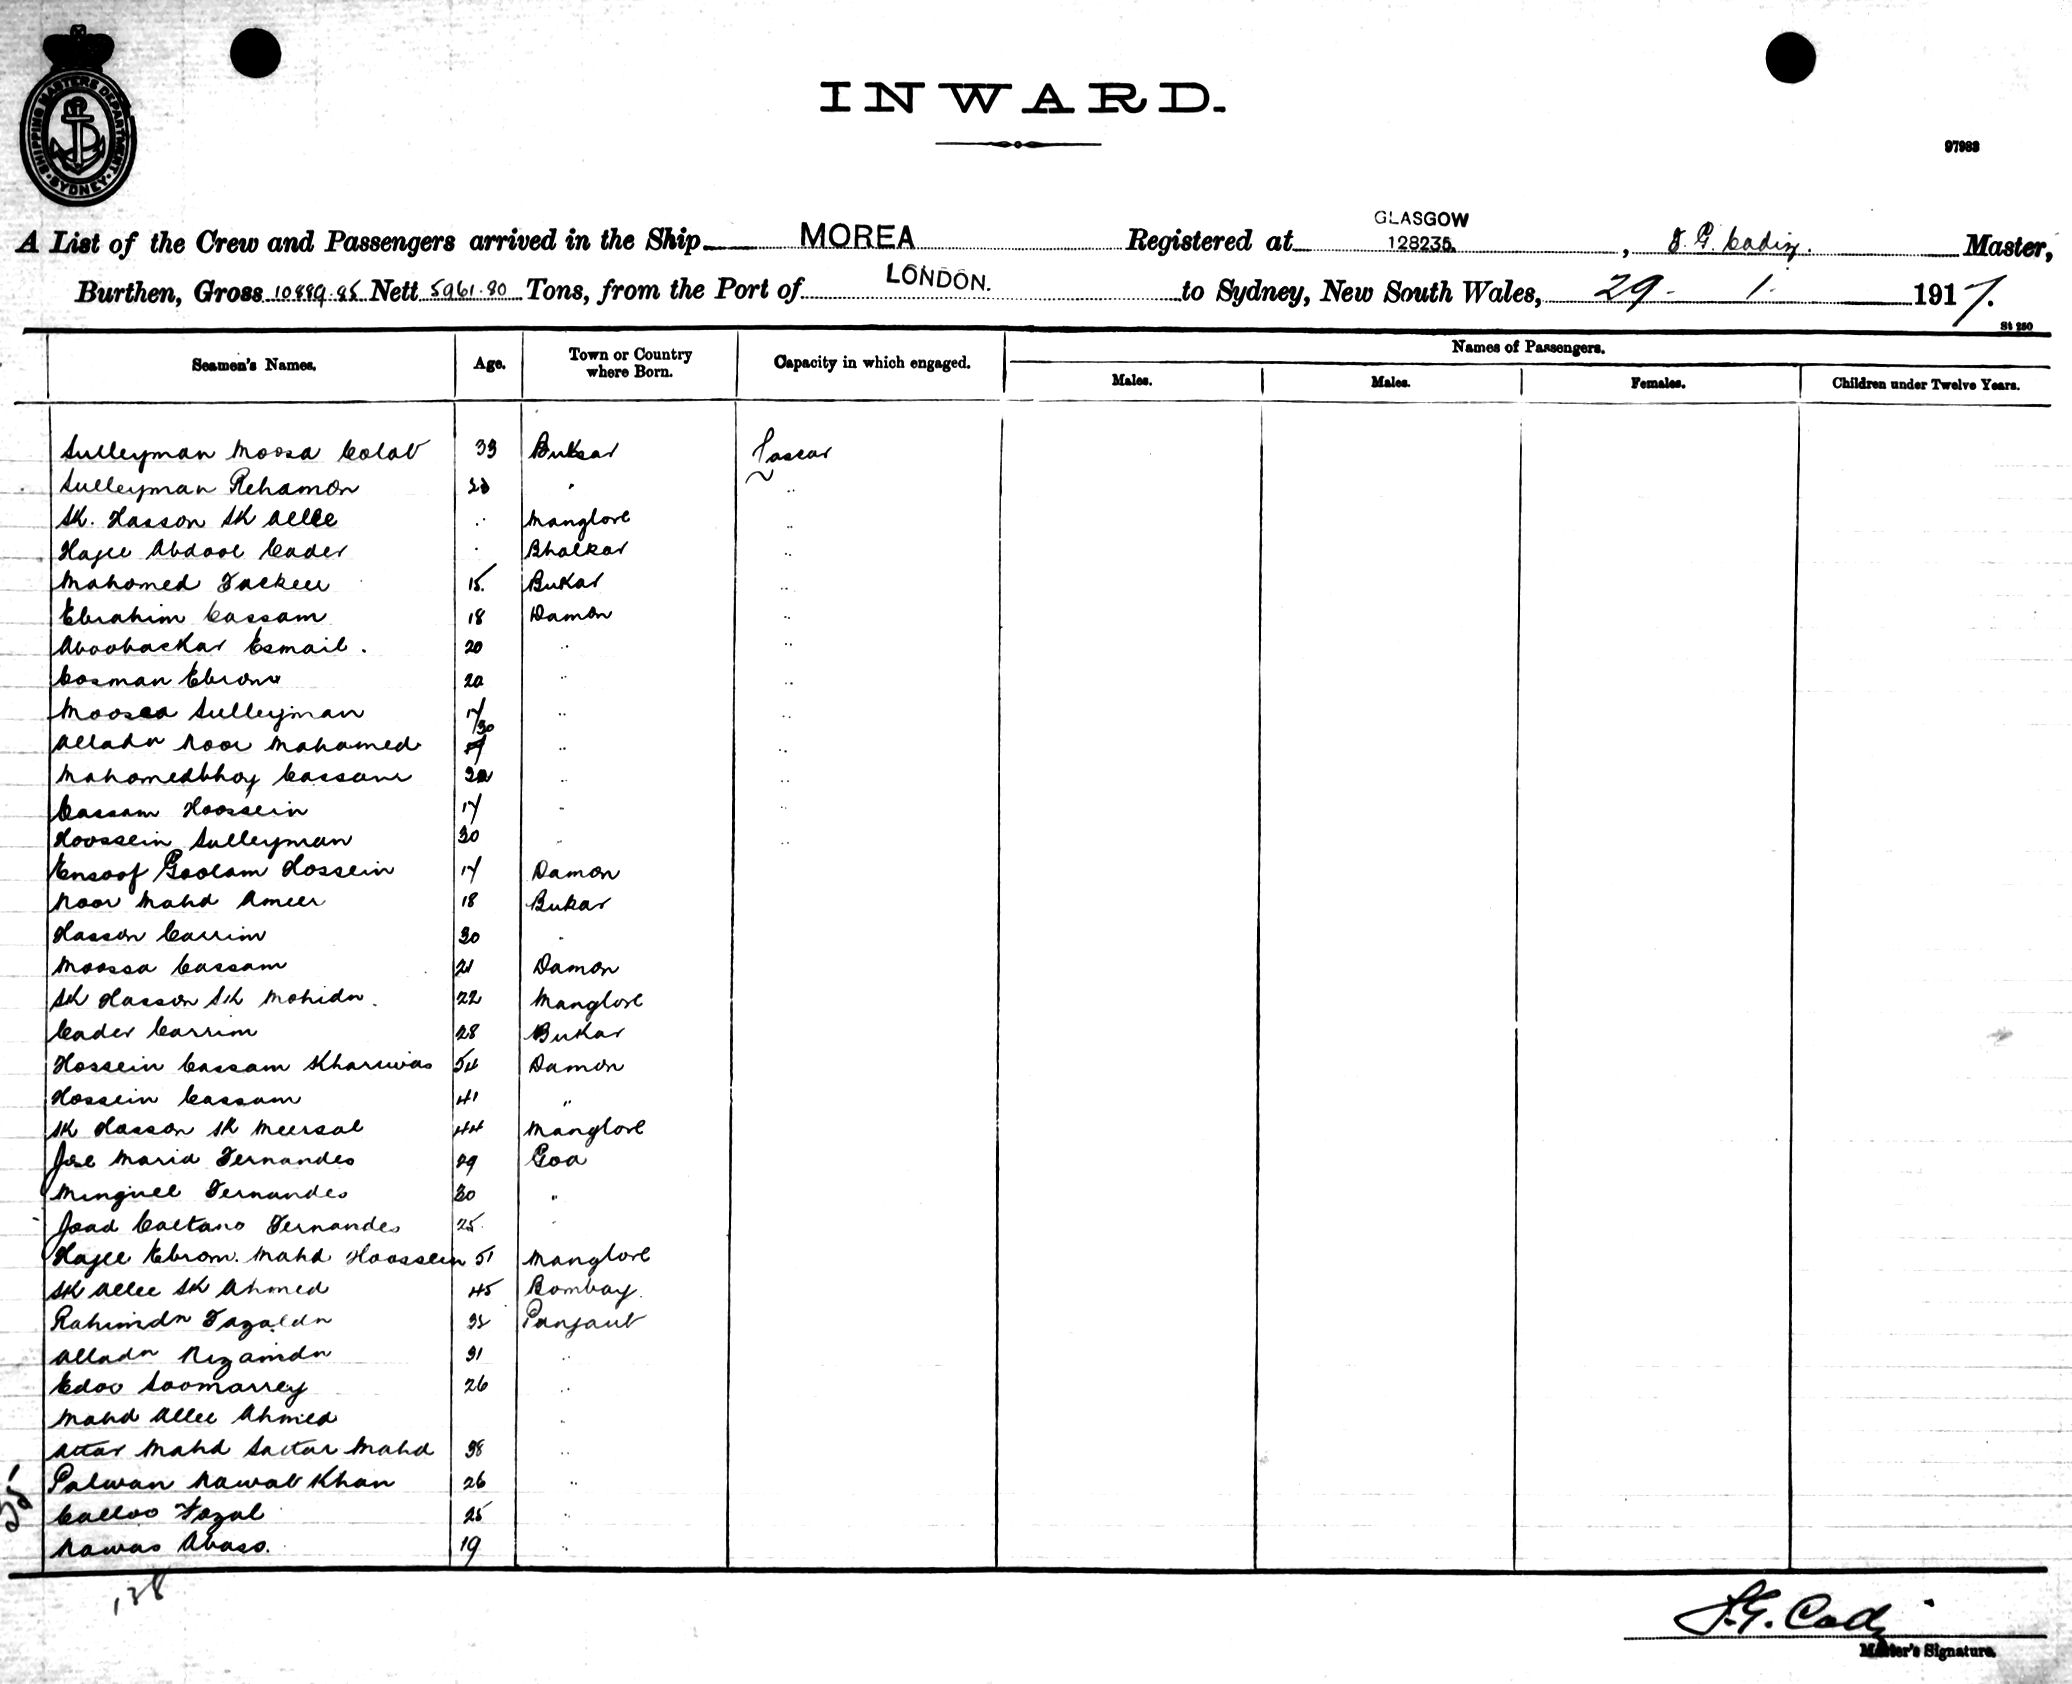 SHIPPING MASTERS DEPARTMENT SYDNEY
INWARD.
97983
A List of the Crew and Passengers arrived in the Ship MOREA Registered at GLASGOW 128235, Master,
Burthen, Gross 10889.95 Nett 5961.80 Tons, from the Port of LONDON. to Sydney, New South Wales, 29 - 1. 1917.
St 250
Seamen's Names. Age. Town or Country where Born. Capacity in which engaged. Names of Passengers.
Males. Males. Females. Children under Twelve Years.
Sulleyman Moosa 33 Buksar Lascar
Sulleyman Rehamon 23 " "
Sk. Hasson Sk Allee " Manglore "
Hajee Abdool Cader " Bhalkar "
Mahomed 15 Bukar "
Ebrahim Cassam 18 Damon "
Aboobackar Esmail. 20 " "
Cosman Ebrom 20 " "
Moosea Sulleyman 17 " "
Alladn Noor Mahomed 30 " "
Mahomedbhoy Cassam " "
Cassam Hoossein 17 " "
Hoossein Sulleyman 30 " "
Goolam Hossein 17 Damon
Noor Mahd Ameer 18 Bukar
Hasson Carrim 30 "
Moossa Cassam 21 Damon
Sk Hasson Sk Mohidn. 22 Manglore
Cader Carrim 28 Bukar
Hossein Cassam 54 Damon
Hossein Cassam 41 "
Sk Hasson Sk 44 Manglore
Jose Maria Fernandes 29 Goa
Minguel Fernandes 30 "
Joad Caetano Fernandes 25 "
Hajee Ebrom. Mahd Hoossein 51 Manglore
Sk Allee Sk Ahmed 45 Bombay.
Rahimdn Fazaldn Panjaub
Alladn Nizamdn 31 "
Edoo Soomarrey 26 "
Mahd Allee Ahmed "
Attar Mahd Sattar Mahd 38 "
Palwan Nawab Khan 26 "
Calloo Fazal 25 "
Nawas Abass. 19 "
35
138
Master's Signature.